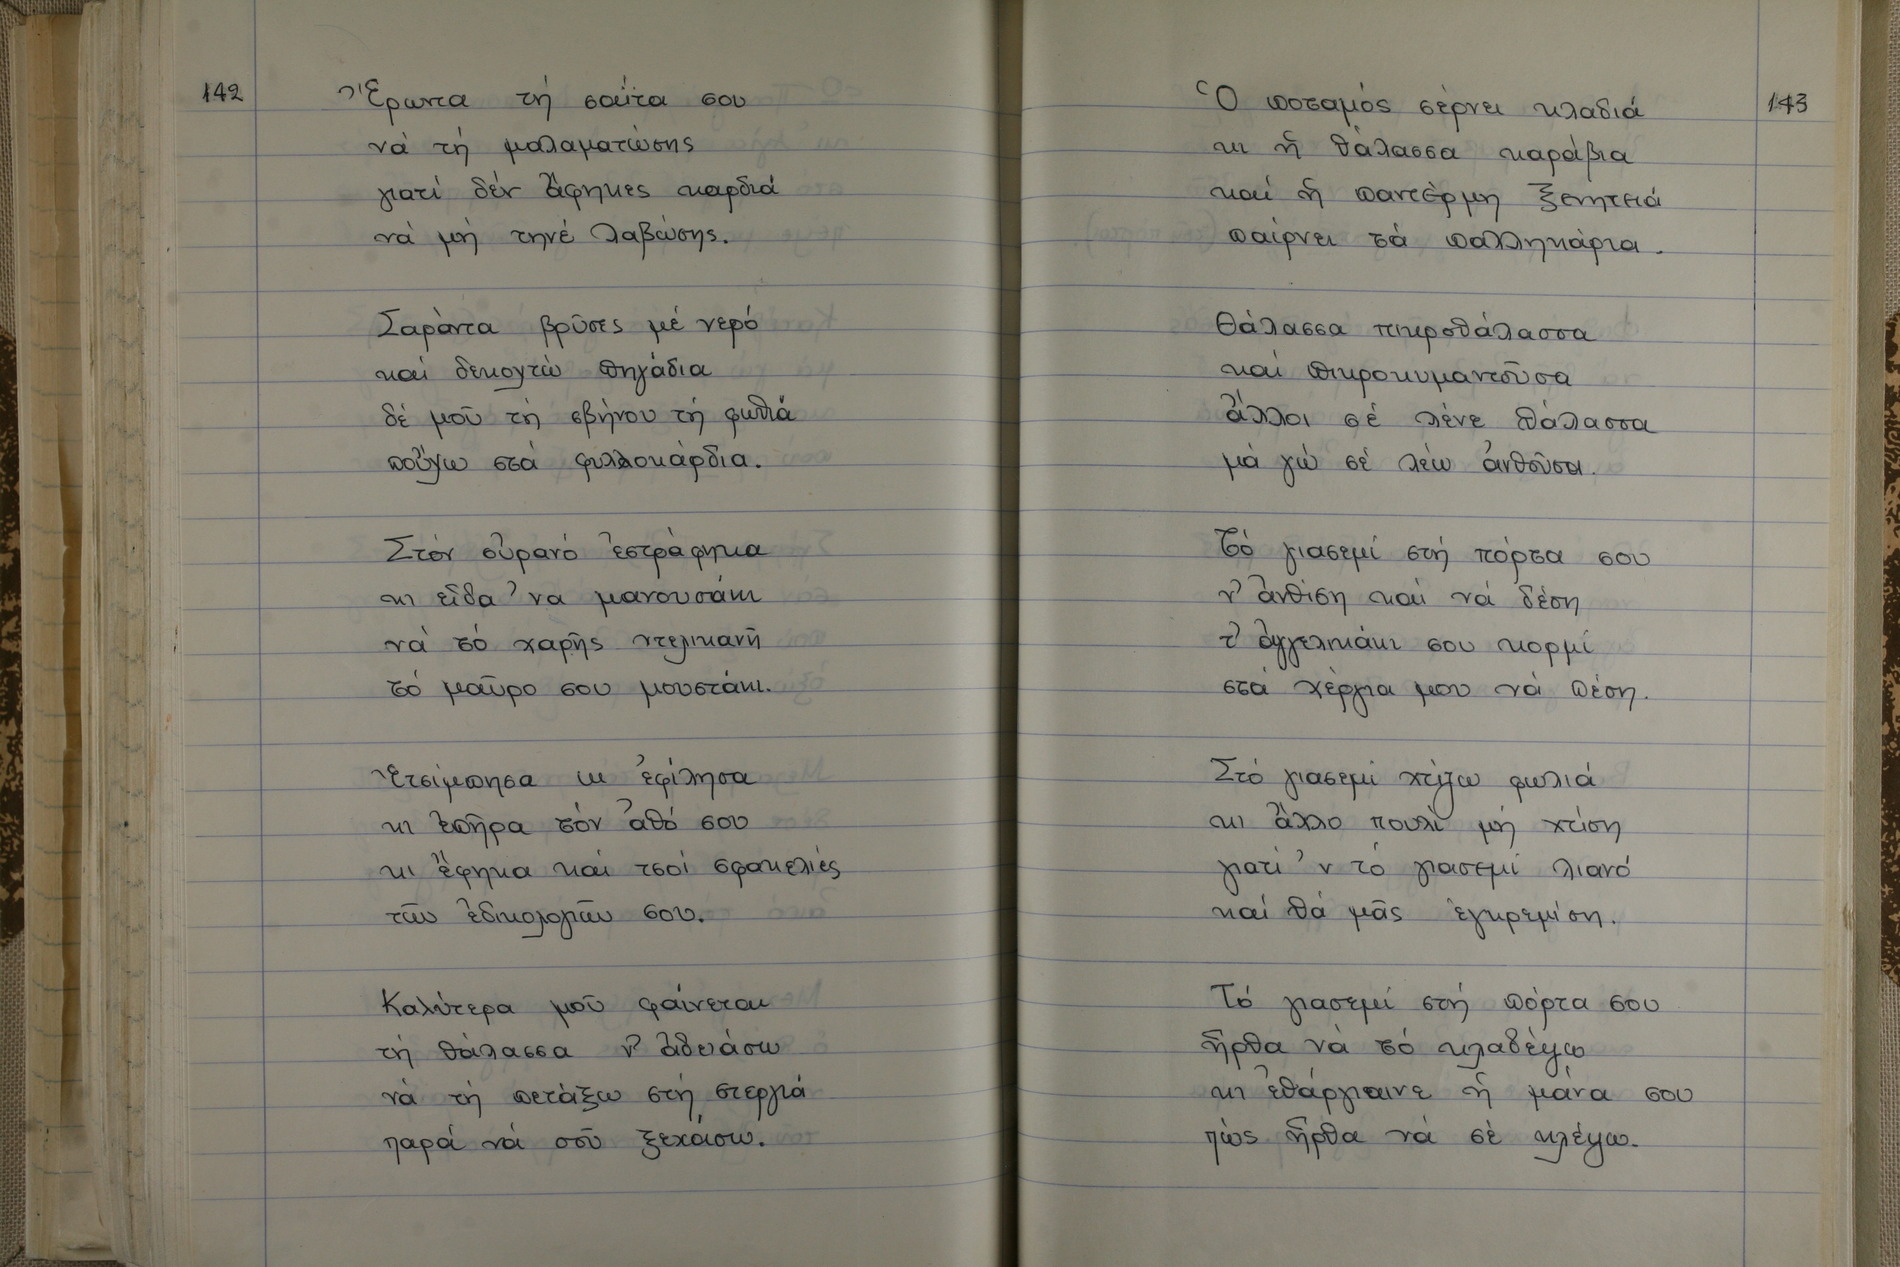 142
Ἔρωντα τή σαΐτα σου
νά τή μαλαματώσης
γιατί δέν ἄφηκες καρδιά
νά μή τηνέ λαβώσης.
Σαράντα βρῦσες μέ νερό
καί δεκοχτώ πηγάδια
δέ μοῦ τή σβήνου τή φωθιά
ποὔχω στά φυλλοκάρδια.
Στόν οὐρανό ἐστράφηκα
κι εἶδα ’να μανουσάκι
νά τό χαρῆς ντελικανῆ
τό μαῦρο σου μουστάκι.
Ἐτσίμπησα κι ἐφίλησα
κι ἐπῆρα τόν ἀθό σου
κι ἔφηκα καί τσοί σφακελιές
τῶν ἐδικολογιῶν σου.
Καλύτερα μοῦ φαίνεται
τή θάλασσα ν’ ἀδειάσω
νά τή πετάξω στή στεργιά
παρά νά σοῦ ξεχάσω.
143
Ὁ ποταμός σέρνει κλαδιά
κι ἡ θάλασσα καράβια
καί ἡ παντέρμη ξενητειά
παίρνει τά παλληκάρια.
Θάλασσα πικροθάλασσα
καί πικροκυμαντοῦσα
ἄλλοι σέ λένε θάλασσα
μά γώ σέ λέω ἀνθοῦσα.
Τό γιασεμί στή πόρτα σου
ν’ ἀνθίση καί νά δέση
τ’ ἀγγελικάκι σου κορμί
στά χέργια μου νά πέση.
Στό γιασεμί χτίζω φωλιά
κι ἄλλο πουλί μή χτίση
γιατί ’ν τό γιασεμί λιανό
καί θά μᾶς ἐγκρεμίση.
Τό γιασεμί στή πόρτα σου
ἦρθα νά τό κλαδέψω
κι ἐθάργιαινε ἡ μάνα σου
πώς ἦρθα νά σέ κλέψω.